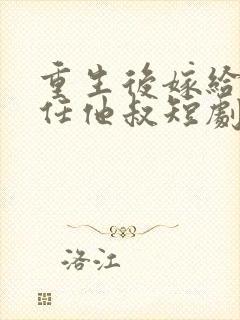 重生後嫁給
任他叔短劇
洛江